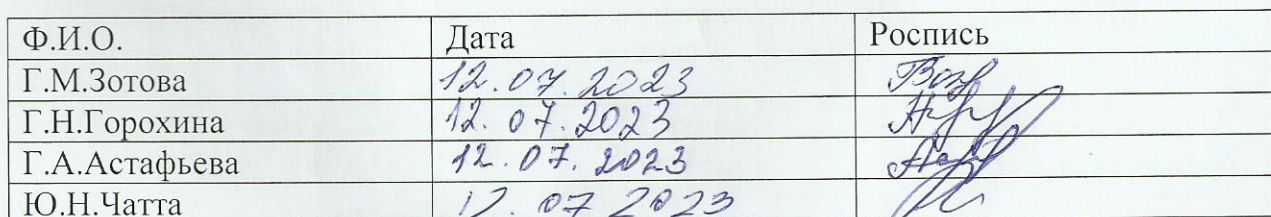 Ф.И.О. Дата Роспись
Г.М.Зотова 12.07.2023
Г.Н.Горохина 12.07.2023
Г.А.Астафьева 12.07.2023
Ю.Н.Чатта 12.07 2023